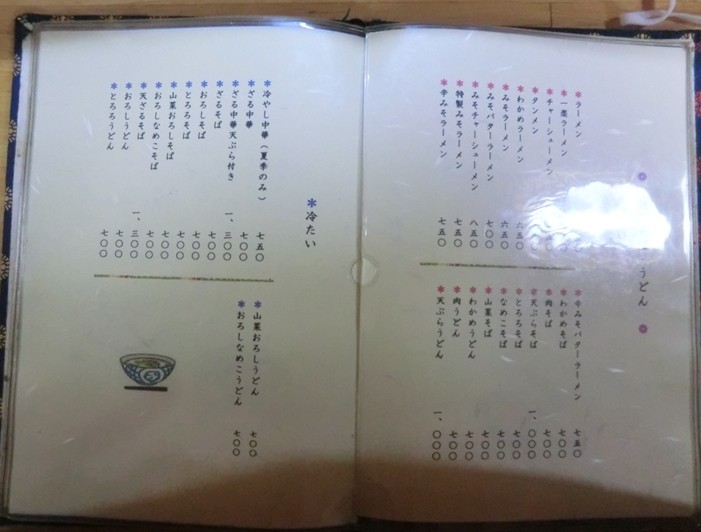 うどん
＊ラーメン
＊一楽ラーメン
＊チャーシューメン
＊タンメン
＊わかめラーメン 六五〇
＊みそラーメン 六五〇
＊みそバターラーメン 七〇〇
＊みそチャーシューメン 八五〇
＊特製みそラーメン 七五〇
＊辛みそラーメン 七五〇
＊辛みそバターラーメン 七五〇
＊わかめそば 七〇〇
＊肉そば 七〇〇
＊天ぷらそば 一、〇〇〇
＊とろろそば 七〇〇
＊なめこそば 七〇〇
＊山菜そば 七〇〇
＊わかめうどん 七〇〇
＊肉うどん 七〇〇
＊天ぷらうどん 一、〇〇〇
＊冷たい
＊冷やし中華（夏季のみ） 七五〇
＊ざる中華 七〇〇
＊ざる中華天ぷら付き 一、三〇〇
＊ざるそば 七〇〇
＊おろしそば 七〇〇
＊とろろそば 七〇〇
＊山菜おろしそば 七〇〇
＊おろしなめこそば 七〇〇
＊天ざるそば 一、三〇〇
＊おろしうどん 七〇〇
＊とろろうどん 七〇〇
＊山菜おろしうどん 七〇〇
＊おろしなめこうどん 七〇〇